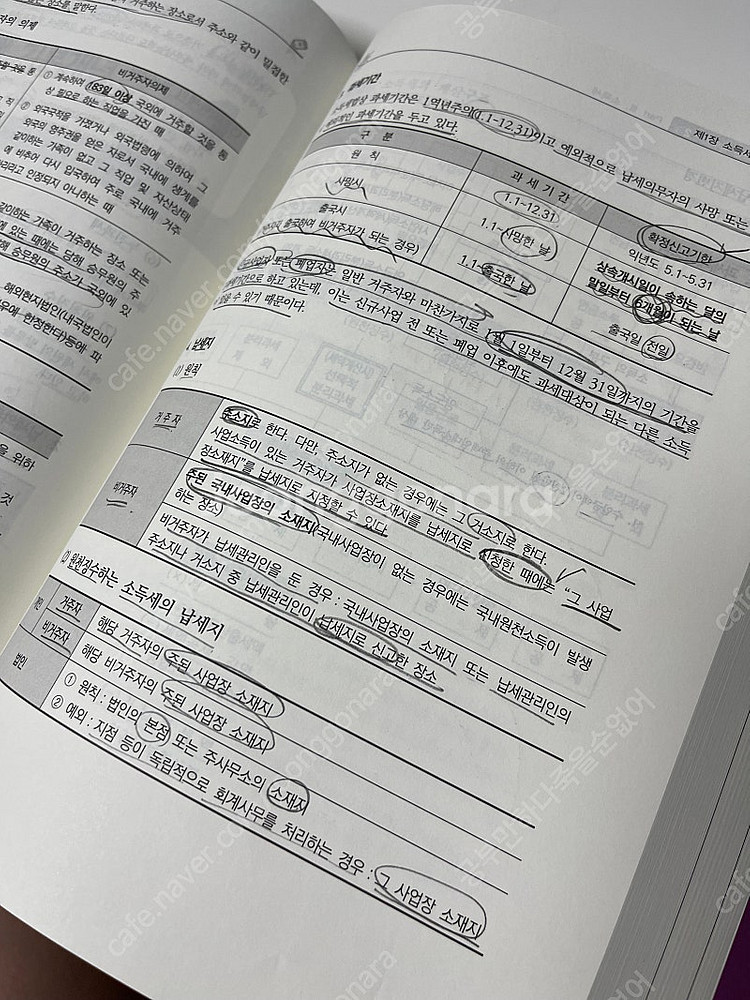 거주하는 장소로서 주소와 같이 밀접한
장소를 말한다.
자의 의제
비거주자의제
① 계속하여 183일 이상 국외에 거주할 것을 통
상 필요로 하는 직업을 가진 때
② 외국국적을 가졌거나 외국법령에 의하여 그
외국의 영주권을 얻은 자로서 국내에 생계를
같이하는 가족이 없고 그 직업 및 자산상태
에 비추어 다시 입국하여 주로 국내에 거주
하리라고 인정되지 아니하는 때
같이하는 가족이 거주하는 장소 또는
에 있는 때에는 당해 승무원의 주
해 승무원의 주소가 국외에 있
해외현지법인(내국법인이
우에 한정한다)등에 파
을 위하
것
제1장 소득세
과세기간
소득세법상 과세기간은 1역년주의(1.1-12.31)이고 예외적으로 납세의무자의 사망 또는
과세기간을 두고 있다.
구 분
과 세 기 간
확정신고기한
원 칙
1.1-12.31
익년도 5.1-5.31
사망시
1.1-사망한 날
상속개시일이 속하는 달의
말일부터 6개월이 되는 날
출국시
출국하여 비거주자가 되는 경우)
1.1-출국한 날
출국일 전일
또는 폐업자는 일반 거주자와 마찬가지로 1월 1일부터 12월 31일까지의 기간을
과세기간으로 하고 있는데, 이는 신규사업 전 또는 폐업 이후에도 과세대상이 되는 다른 소득
이 있을 수 있기 때문이다.
4. 납세지
(1) 원칙
거주자
주소지로 한다. 다만, 주소지가 없는 경우에는 그 거소지로 한다.
사업소득이 있는 거주자가 사업장소재지를 납세지로 지정한 때에는 "그 사업
장소재지"를 납세지로 지정할 수 있다
비거주자
주된 국내사업장의 소재지(국내사업장이 없는 경우에는 국내원천소득이 발생
하는 장소)
비거주자가 납세관리인을 둔 경우 : 국내사업장의 소재지 또는 납세관리인의
주소지나 거소지 중 납세관리인이 납세지로 신고한 장소
(2) 원천징수하는 소득세의 납세지
거주자
해당 거주자의 주된 사업장 소재지
비거주자
해당 비거주자의 주된 사업장 소재지
법인
① 원칙 : 법인의 본점 또는 주사무소의 소재지
② 예외 : 지점 등이 독립적으로 회계사무를 처리하는 경우 : 그 사업장 소재지
cafe.naver.com/joonggonara
공부만하다죽을순없어